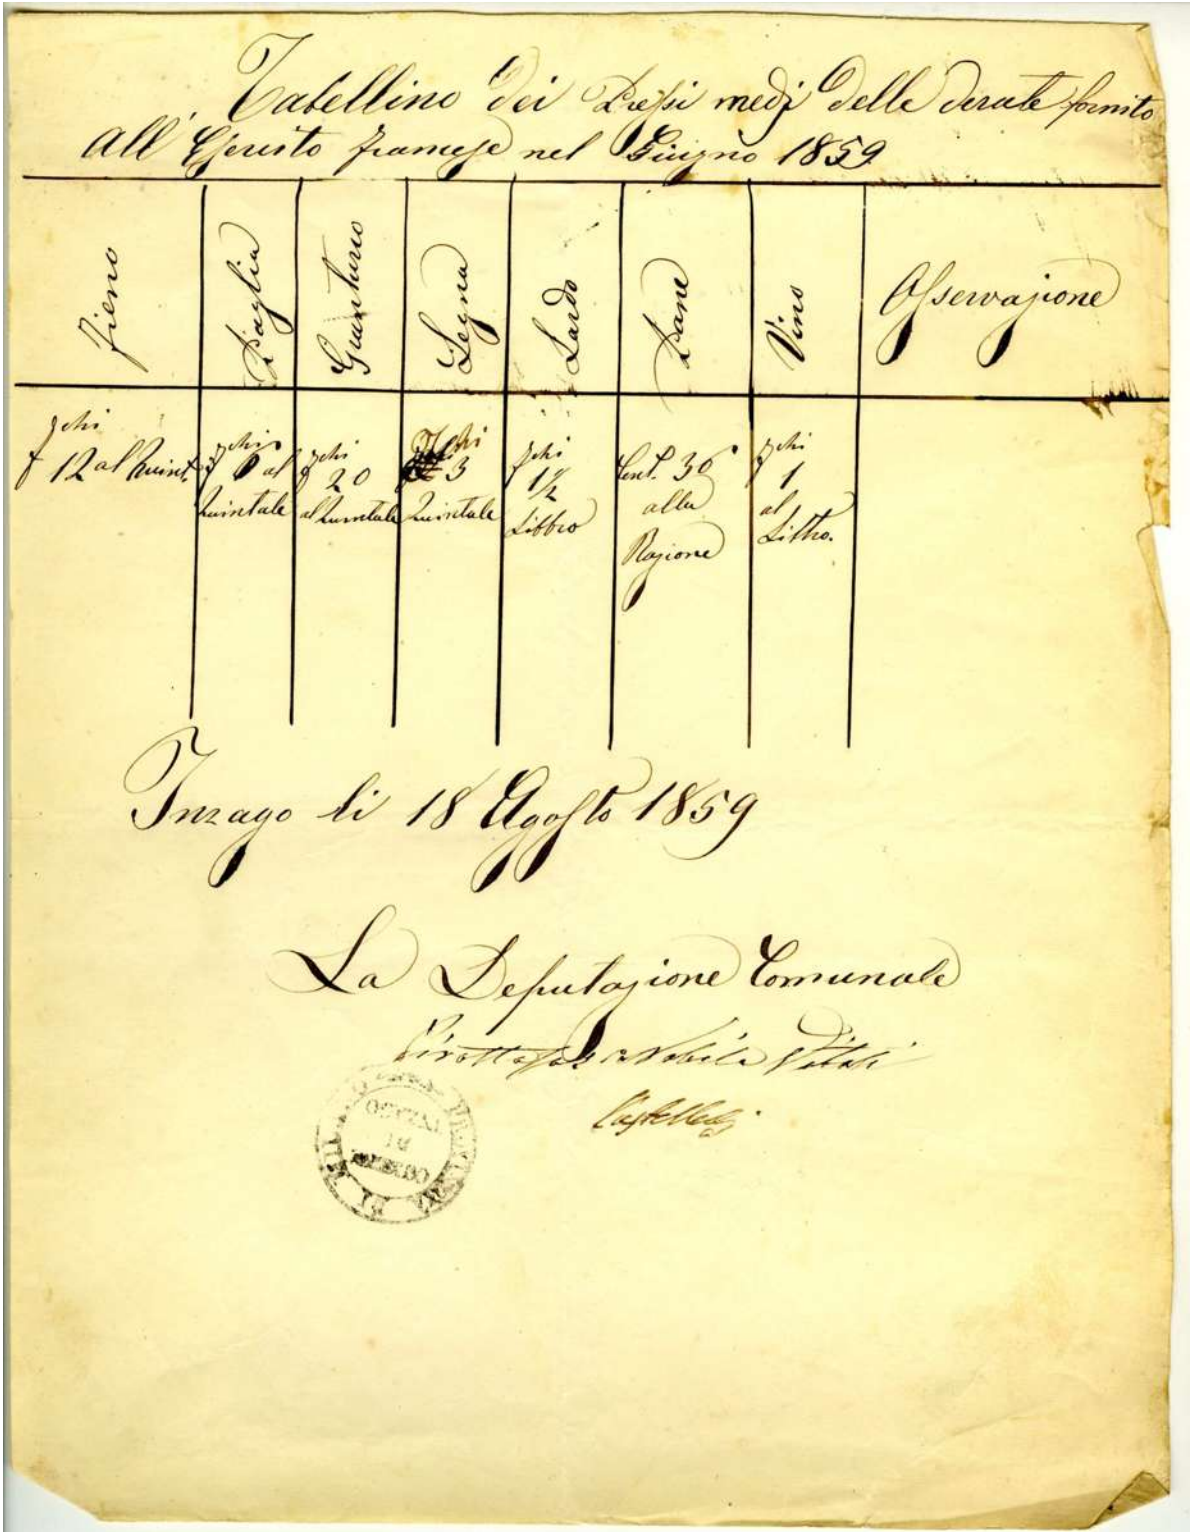 Tabellino dei Prezzi medj delle derate fornite
all' Esercito francese nel Giugno 1859
Fieno
Paglia
Granturco
Legna
Lardo
Pane
Vino
Osservazione
fchi
f 12 al Quint.
fchi
al
Quintale
fchi
20
al Quintale
fchi
3
Quintale
fchi
1 1/2
Libbro
Cent. 30
alla
Razione
fchi
1
al
Littro.
Inzago li 18 Agosto 1859
La Deputazione Comunale
Nobile Vitali
COMUNE
DI
INZAGO